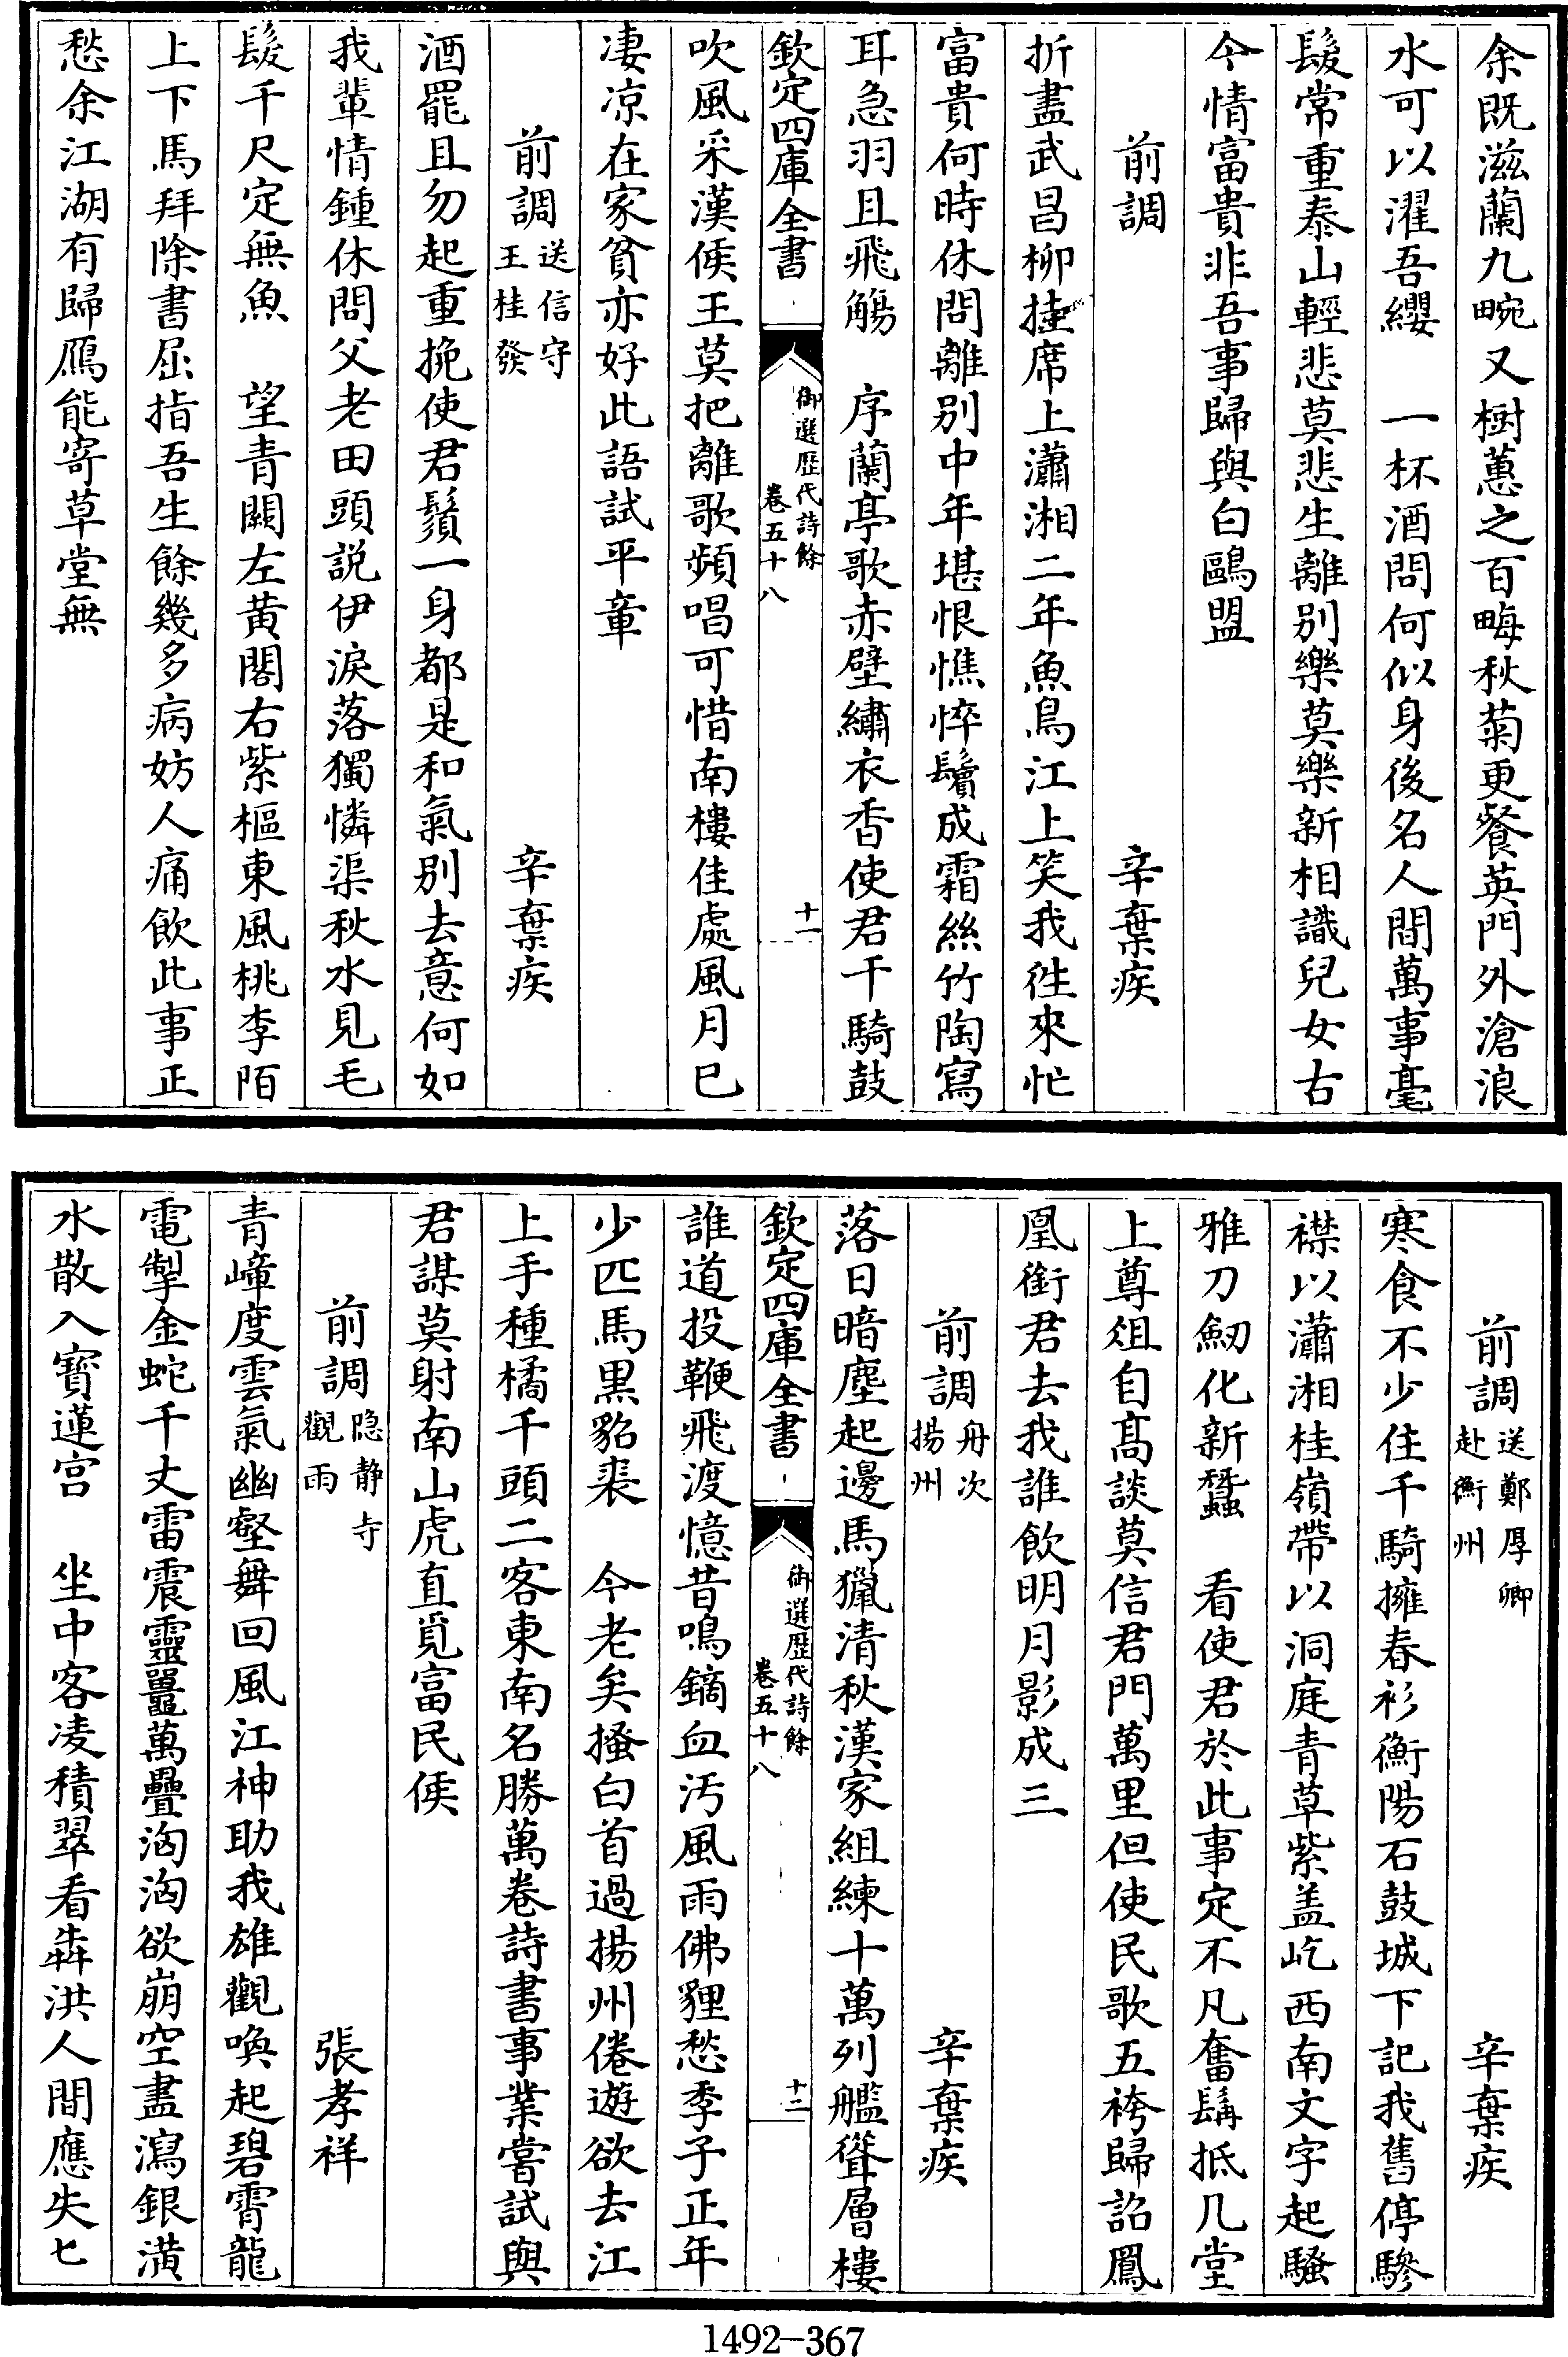 余既滋蘭九畹又樹蕙之百畮秋菊更餐英門外滄浪
水可以濯吾纓　一杯酒問何似身後名人間萬事毫
髮常重泰山輕悲莫悲生離別樂莫樂新相識兒女古
今情富貴非吾事歸與白鷗盟
前調　辛棄疾
折盡武昌柳挂席上瀟湘二年魚鳥江上笑我徃來忙
富貴何時休問離別中年堪恨憔悴鬢成霜絲竹陶寫
耳急羽且飛觴　序蘭亭歌赤壁繡衣香使君千騎鼓
欽定四庫全書　御選歴代詩餘　卷五十八　十一
吹風采漢侯王莫把離歌頻唱可惜南樓佳處風月已
凄凉在家貧亦好此語試平章
前調　送信守王桂發　辛棄疾
酒罷且勿起重挽使君鬚一身都是和氣別去意何如
我輩情鍾休問父老田頭説伊淚落獨憐渠秋水見毛
髮千尺定無魚　望青闕左黄閣右紫樞東風桃李陌
上下馬拜除書屈指吾生餘幾多病妨人痛飲此事正
愁余江湖有歸鴈能寄草堂無
前調　送鄭厚卿赴衡州　辛棄疾
寒食不少住千騎擁春衫衡陽石鼓城下記我舊停驂
襟以瀟湘桂嶺帶以洞庭青草紫盖屹西南文字起騷
雅刀劒化新蠶　看使君於此事定不凡奮髯抵几堂
上尊俎自髙談莫信君門萬里但使民歌五袴歸詔鳳
凰銜君去我誰飲明月影成三
前調　舟次揚州　辛棄疾
落日暗塵起邊馬獵清秋漢家組練十萬列艦聳層樓
欽定四庫全書　御選歴代詩餘　卷五十八　十二
誰道投鞭飛渡憶昔鳴鏑血汚風雨佛貍愁季子正年
少匹馬黒貂裘　今老矣搔白首過揚州倦遊欲去江
上手種橘千頭二客東南名勝萬卷詩書事業嘗試與
君謀莫射南山虎直覓富民侯
前調　隐静寺觀雨　張孝祥
青嶂度雲氣幽壑舞回風江神助我雄觀喚起碧霄龍
電掣金蛇千丈雷震靈鼉萬疊洶洶欲崩空盡瀉銀潢
水散入寳蓮宫　坐中客凌積翠看犇洪人間應失匕
1492-367